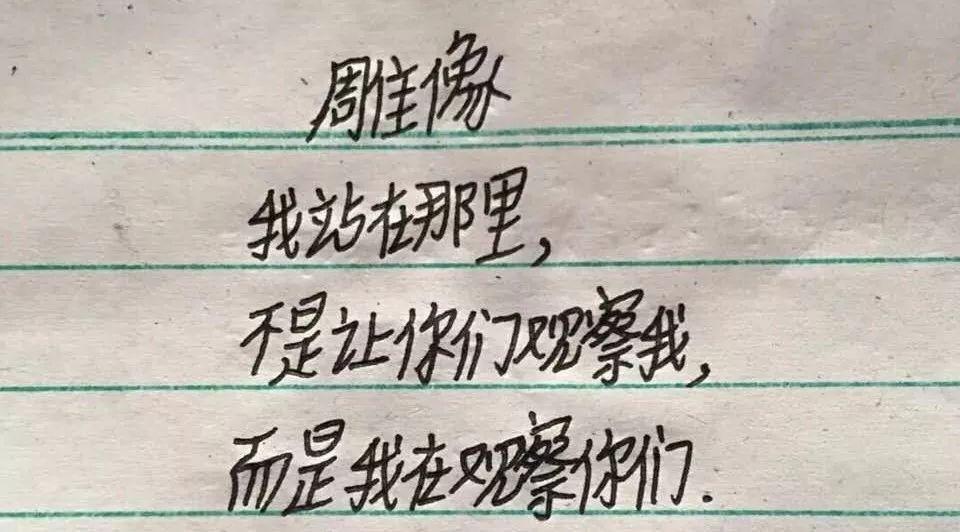 雕像
我站在那里,
不是让你们观察我,
而是我在观察你们.